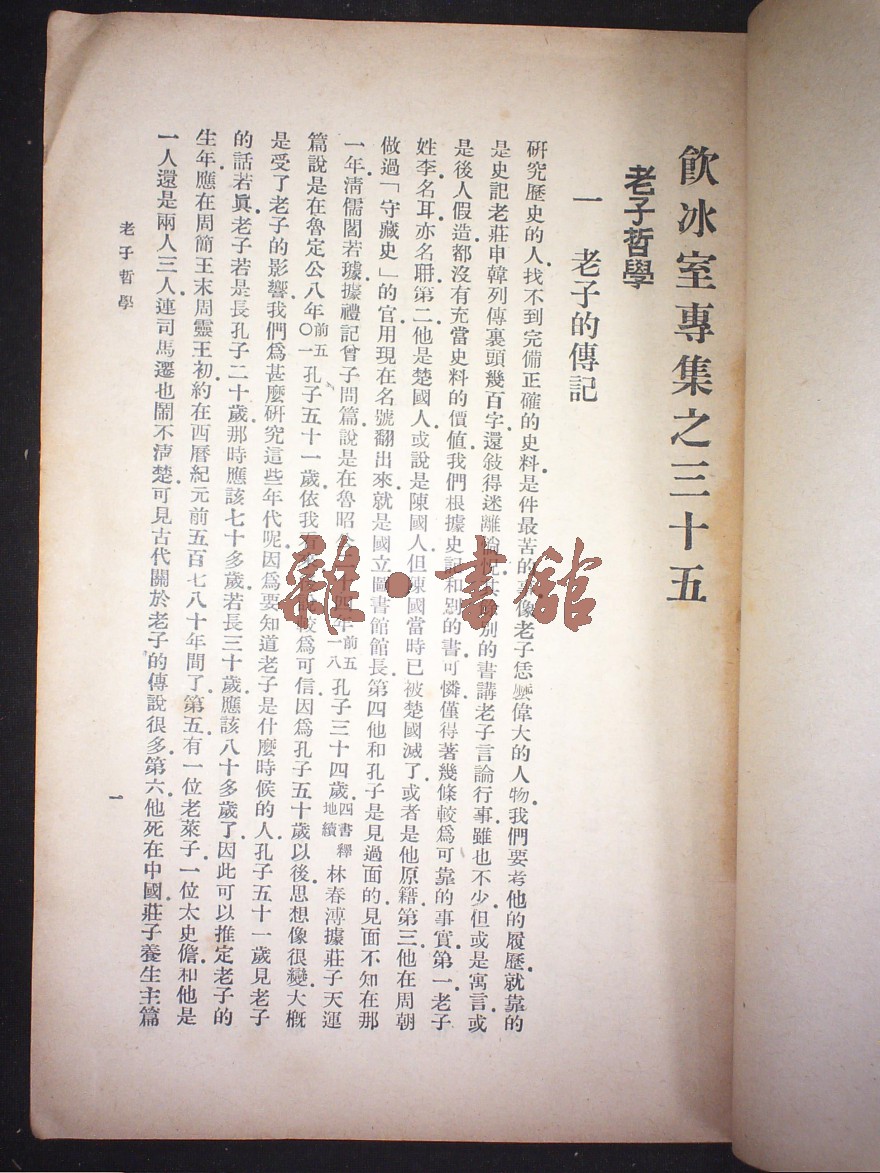 飲冰室專集之三十五
老子哲學
一　老子的傳記
研究歷史的人．找不到完備正確的史料．是件最苦的事．像老子恁麼偉大的人物．我們要考他的履歷．就靠的
是史記老莊申韓列傳裏頭幾百字．還敍得迷離 別的書講老子言論行事．雖也不少．但或是寓言．或
是後人假造．都沒有充當史料的價値．我們根據史記和別的書．可憐僅得著幾條較爲可靠的事實．第一．老子
姓李名耳．亦名聃．第二．他是楚國人．或說是陳國人．但陳國當時已被楚國滅了．或者是他原籍．第三．他在周朝
做過「守藏史」的官．用現在名號翻出來．就是國立圖書館館長．第四．他和孔子是見過面的．見面不知在那
一年．淸儒閻若璩據禮記曾子問篇說是在魯昭 十四年前五一八孔子三十四歲．四書釋地續林春溥據莊子天運
篇說是在魯定公八年前五〇一孔子五十一歲．依我 較爲可信．因爲孔子五十歲以後．思想像很變．大槪
是受了老子的影響．我們爲甚麼硏究這些年代呢．因爲要知道老子是什麼時候的人．孔子五十一歲見老子
的話若眞．老子若是長孔子二十歲．那時應該七十多歲．若長三十歲．應該八十多歲了．因此可以推定老子的
生年應在周簡王末周靈王初．約在西曆紀元前五百七八十年間了．第五．有一位老萊子．一位太史儋．和他是
一人還是兩人三人．連司馬遷也鬧不淸楚．可見古代關於老子的傳說很多．第六．他死在中國．莊子養生主篇
老子哲學
一
雜·書館